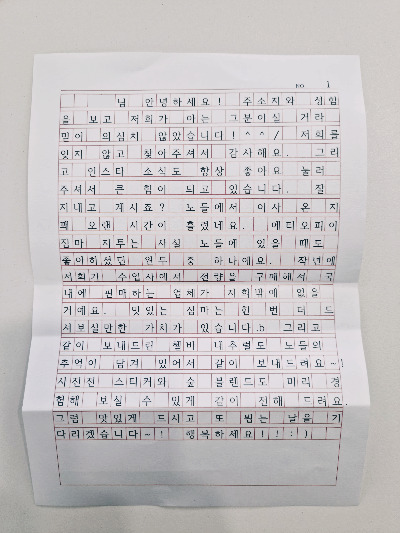 NO 1
님 안녕하세요! 주소지와 성함
을 보고 저희가 아는 그분이실 거라
믿어 의심치 않았습니다! ^^/ 저희를
잊지 않고 찾아주셔서 감사해요. 그리
고 인스타 소식도 항상 좋아요 눌러
주셔서 큰 힘이 되고 있습니다. 잘
지내고 계시죠? 노들에서 이사 온 지
꽤 오랜 시간이 흘렀네요. 에티오피아
짐마 지투는 사실 노들에 있을 때도
좋아하셨던 원두 중 하나예요. 작년에
저희가 수입사에서 전량을 구매해서 국
내에 판매하는 업체가 저희밖에 없을
거예요. 맛있는 짐마는 한 번 더 드
셔보실만한 가치가 있습니다.b 그리고
같이 보내드린 노들의
추억이 담겨 있어서 같이 보내드려요~!
시전전 스티커와 숲 블렌드도 미리 경
험해 보실 수 있게 같이 전해 드려요
그럼 맛있게 드시고 또 뵙는 날을 기
다리겠습니다~! 행복하세요!!:)